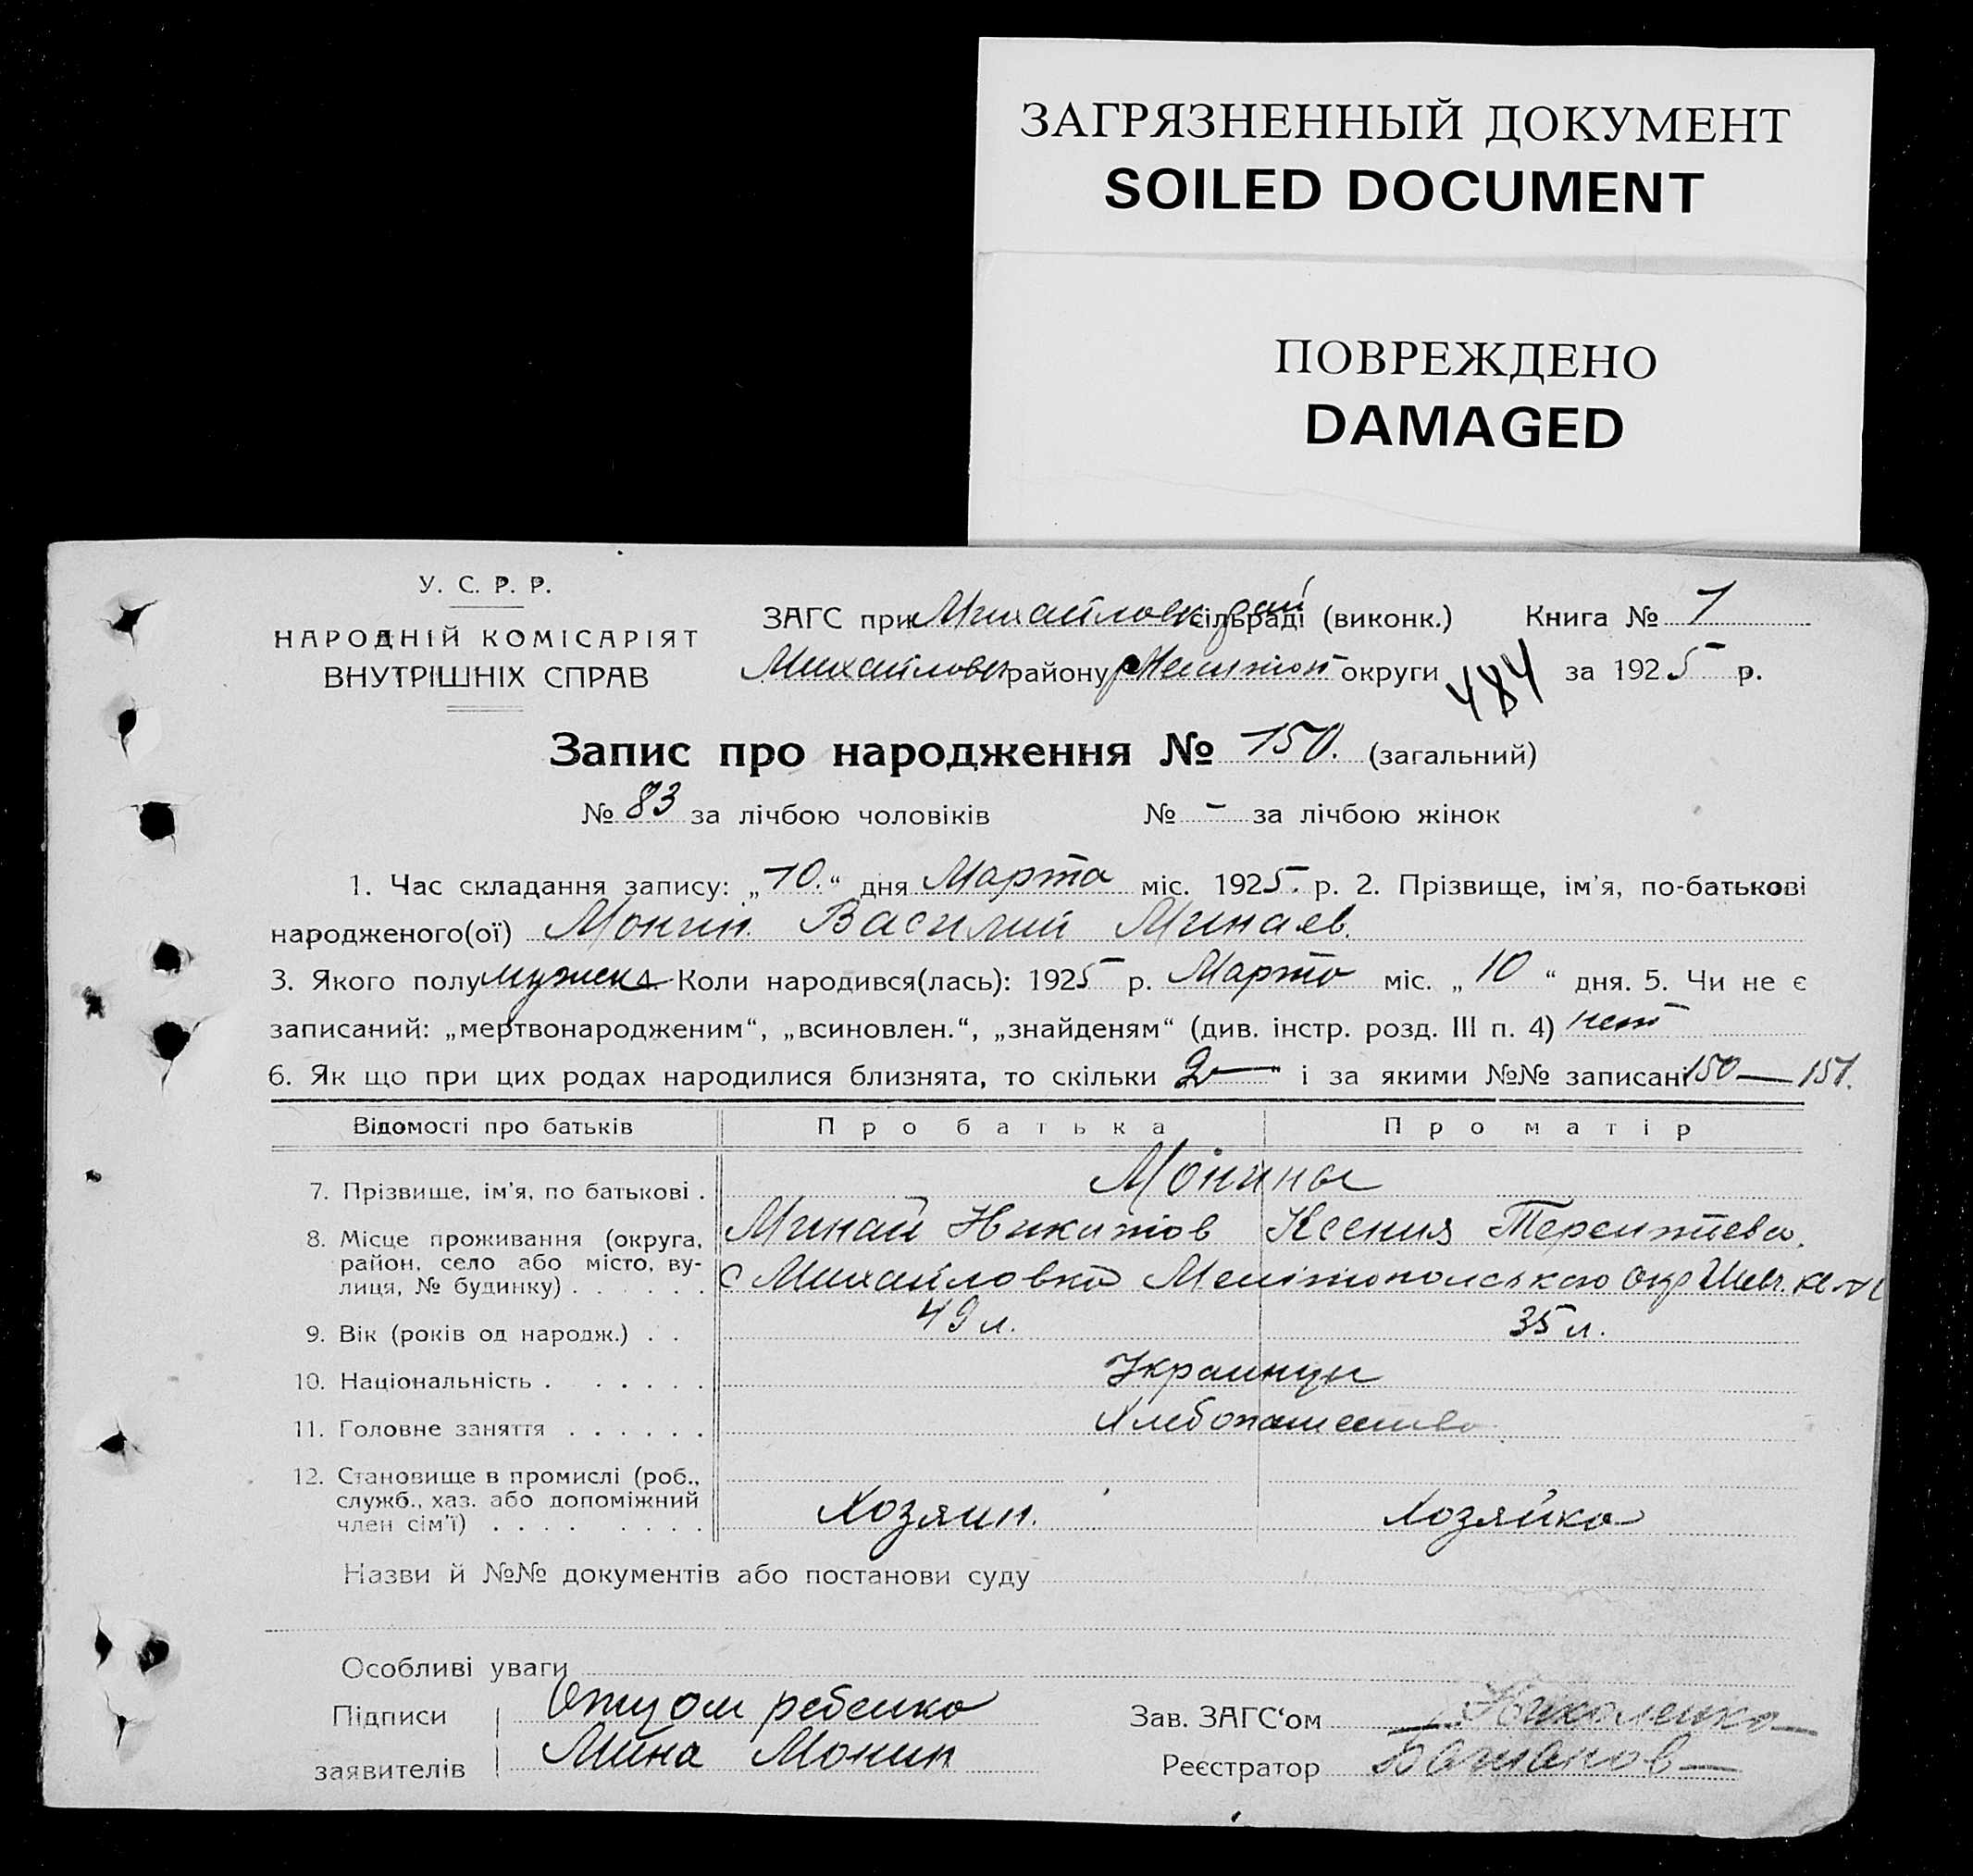 ЗАГРЯЗНЕННЫЙ ДОКУМЕНТ
SOILED DOCUMENT
ПОВРЕЖДЕНО
DAMAGED
У. С. Р. Р.
НАРОДНІЙ КОМІСАРІЯТ
ВНУТРІШНІХ СПРАВ
ЗАГС при Михайловк рай сільраді (виконк.) Книга № 1
Михайловск району Мелитоп округи 484 за 1925 р.
Запис про народження № 150. (загальний)
№ 83 за лічбою чоловіків № - за лічбою жінок
1. Час складання запису: „10.“ дня Марта міс. 1925. р. 2. Прізвище, ім'я, по-батькові
народженого(ої) Монин. Василий Минаев.
3. Якого полу мужск 4. Коли народився(лась): 1925 р. Марта міс. „10“ дня. 5. Чи не є
записаний: „мертвонародженим“, „всиновлен.“, „знайденям“ (див. інстр. розд. III п. 4) нет
6. Як що при цих родах народилися близнята, то скільки 2 — “ і за якими №№ записані 150 — 151.
Відомості про батьків Про батька Про матір
7. Прізвище, ім'я, по батькові . Монины
8. Місце проживання (округа, Минай Никитов Ксения Терентиева.
район, село або місто, ву-
лиця, № будинку) . . . . . . с Михайловка Мелітопольською окр
9. Вік (років од народж.) . . 49 л. 35 л.
10. Національність . . . . . . Украинцы
11. Головне заняття . . . . . . Хлебопашество
12. Становище в промислі (роб.,
служб., хаз. або допоміжний
член сім'ї) . . . . . . . . Хозяин. Хозяйка
Назви й №№ документів або постанови суду
Особливі уваги
Підписи Отцом ребенка Зав. ЗАГС‘ом Николенко
заявителів Мина Монин Реєстратор